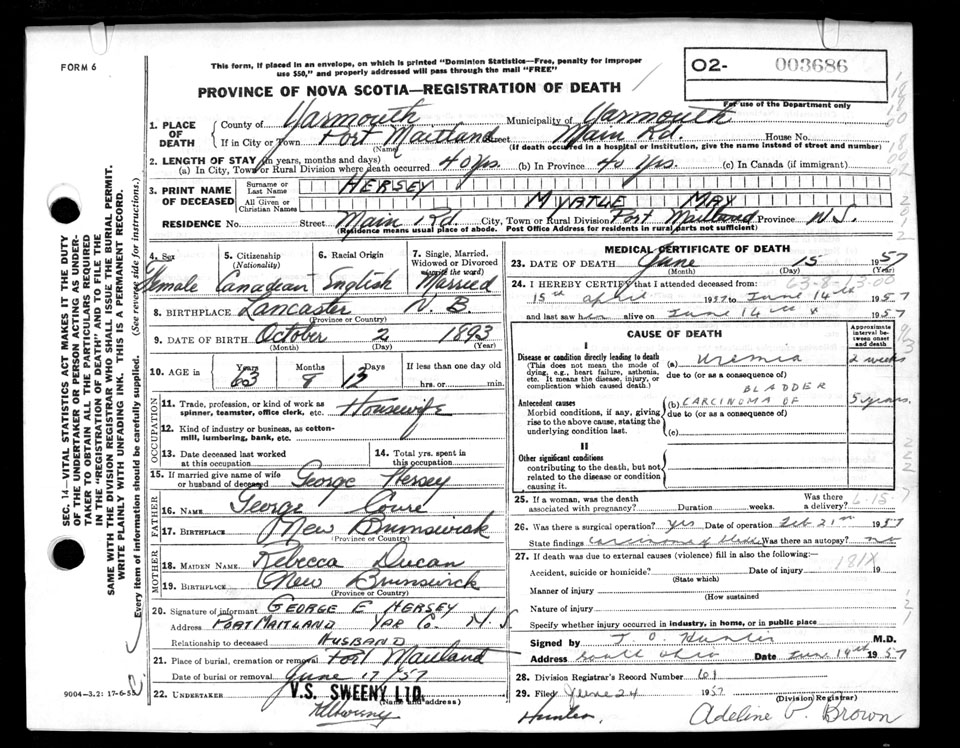 FORM 6
This form, if placed in an envelope, on which is printed "Dominion Statistics—Free, penalty for improper
use $50," and properly addressed will pass through the mail "FREE"
O2- 003686
For use of the Department only
PROVINCE OF NOVA SCOTIA—REGISTRATION OF DEATH
1. PLACE OF DEATH
County of Yarmouth Municipality of Yarmouth
If in City or Town Port Maitland Street Main Rd. House No.
(Name) (If death occurred in a hospital or institution, give the name instead of street and number)
2. LENGTH OF STAY (in years, months and days)
(a) In City, Town or Rural Division where death occurred 40 yrs. (b) In Province 40 Yrs. (c) In Canada (if immigrant)
3. PRINT NAME OF DECEASED
Surname or Last Name HERSEY
All Given or Christian Names MYRTLE MAY
RESIDENCE No. Street Main Rd City, Town or Rural Division Port Maitland Province N.S.
(Residence means usual place of abode. Post Office Address for residents in rural parts not sufficient)
4. Sex Female
5. Citizenship (Nationality) Canadian
6. Racial Origin English
7. Single, Married, Widowed or Divorced (write the word) Married
8. BIRTHPLACE Lancaster N.B.
(Province or Country)
9. DATE OF BIRTH October 2 1893
(Month) (Day) (Year)
10. AGE in Years 63 Months 8 Days 13 If less than one day old hrs. or min.
OCCUPATION
11. Trade, profession, or kind of work as spinner, teamster, office clerk, etc. Housewife
12. Kind of industry or business, as cotton-mill, lumbering, bank, etc.
13. Date deceased last worked at this occupation
14. Total yrs. spent in this occupation
15. If married give name of wife or husband of deceased George Hersey
FATHER
16. Name George
17. BIRTHPLACE New Brunswick
(Province or Country)
MOTHER
18. MAIDEN NAME Rebecca Ducan
19. BIRTHPLACE New Brunswick
(Province or Country)
20. Signature of informant GEORGE E HERSEY
Address PORT MAITLAND YAR Co. N.S.
Relationship to deceased HUSBAND
21. Place of burial, cremation or removal Port Maitland
Date of burial or removal June 17/57
22. UNDERTAKER V.S. SWEENY LTD.
(Name and address)
9004-3.2: 17-6-53
MEDICAL CERTIFICATE OF DEATH
23. DATE OF DEATH June 15 1957
(Month) (Day) (Year)
24. I HEREBY CERTIFY that I attended deceased from:
15th April 1957 to June 14th 1957
and last saw her alive on June 14th 1957
CAUSE OF DEATH
Approximate interval between onset and death
I
Disease or condition directly leading to death
(This does not mean the mode of dying, e.g., heart failure, asthenia, etc. It means the disease, injury, or complication which caused death.)
(a) Uremia 2 weeks
due to (or as a consequence of)
BLADDER
Antecedent causes
Morbid conditions, if any, giving rise to the above cause, stating the underlying condition last.
(b) CARCINOMA OF 5 years.
due to (or as a consequence of)
(c)
II
Other significant conditions
contributing to the death, but not related to the disease or condition causing it.
25. If a woman, was the death associated with pregnancy? Duration weeks. Was there a delivery?
26. Was there a surgical operation? yes Date of operation Feb 21st 1957
State findings Carcinoma of bladder Was there an autopsy? no
27. If death was due to external causes (violence) fill in also the following:—
Accident, suicide or homicide? Date of injury 19
(State which) 181X
Manner of injury
(How sustained)
Nature of injury
Specify whether injury occurred in industry, in home, or in public place
Signed by T. O. Hunter M.D.
Address Date June 14th 1957
28. Division Registrar's Record Number 61
29. Filed June 24 1957
(Division Registrar)
Hunter. Adeline P. Brown
SEC. 14—VITAL STATISTICS ACT MAKES IT THE DUTY
OF THE UNDERTAKER OR PERSON ACTING AS UNDER-
TAKER TO OBTAIN ALL THE PARTICULARS REQUIRED
IN THE "REGISTRATION OF DEATH" AND TO FILE THE
SAME WITH THE DIVISION REGISTRAR WHO SHALL ISSUE THE BURIAL PERMIT.
WRITE PLAINLY WITH UNFADING INK. THIS IS A PERMANENT RECORD.
Every item of information should be carefully supplied. (See reverse side for instructions.)